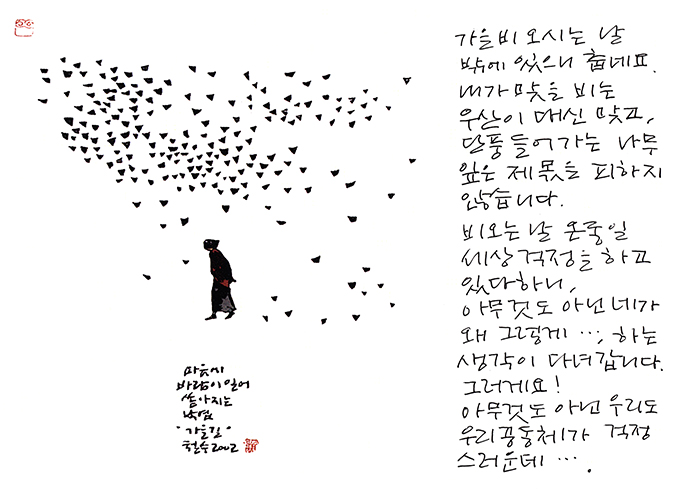 가을비 오시는 날
밖에 있으니 춥네요.
내가 맞을 비는
우산이 대신 맞고,
단풍 들어가는 나무
잎은 제 몫을 피하지
않습니다.
비오는 날 온종일
세상 걱정을 하고
있다하니,
아무것도 아닌 네가
왜 그렇게 …, 하는
생각이 다녀갑니다.
그러게요!
아무것도 아닌 우리도
우리공동체가 걱정
스러운데 ….
마음에
바람이 일어
쏟아지는
낙엽
"가을길"
철수 2002